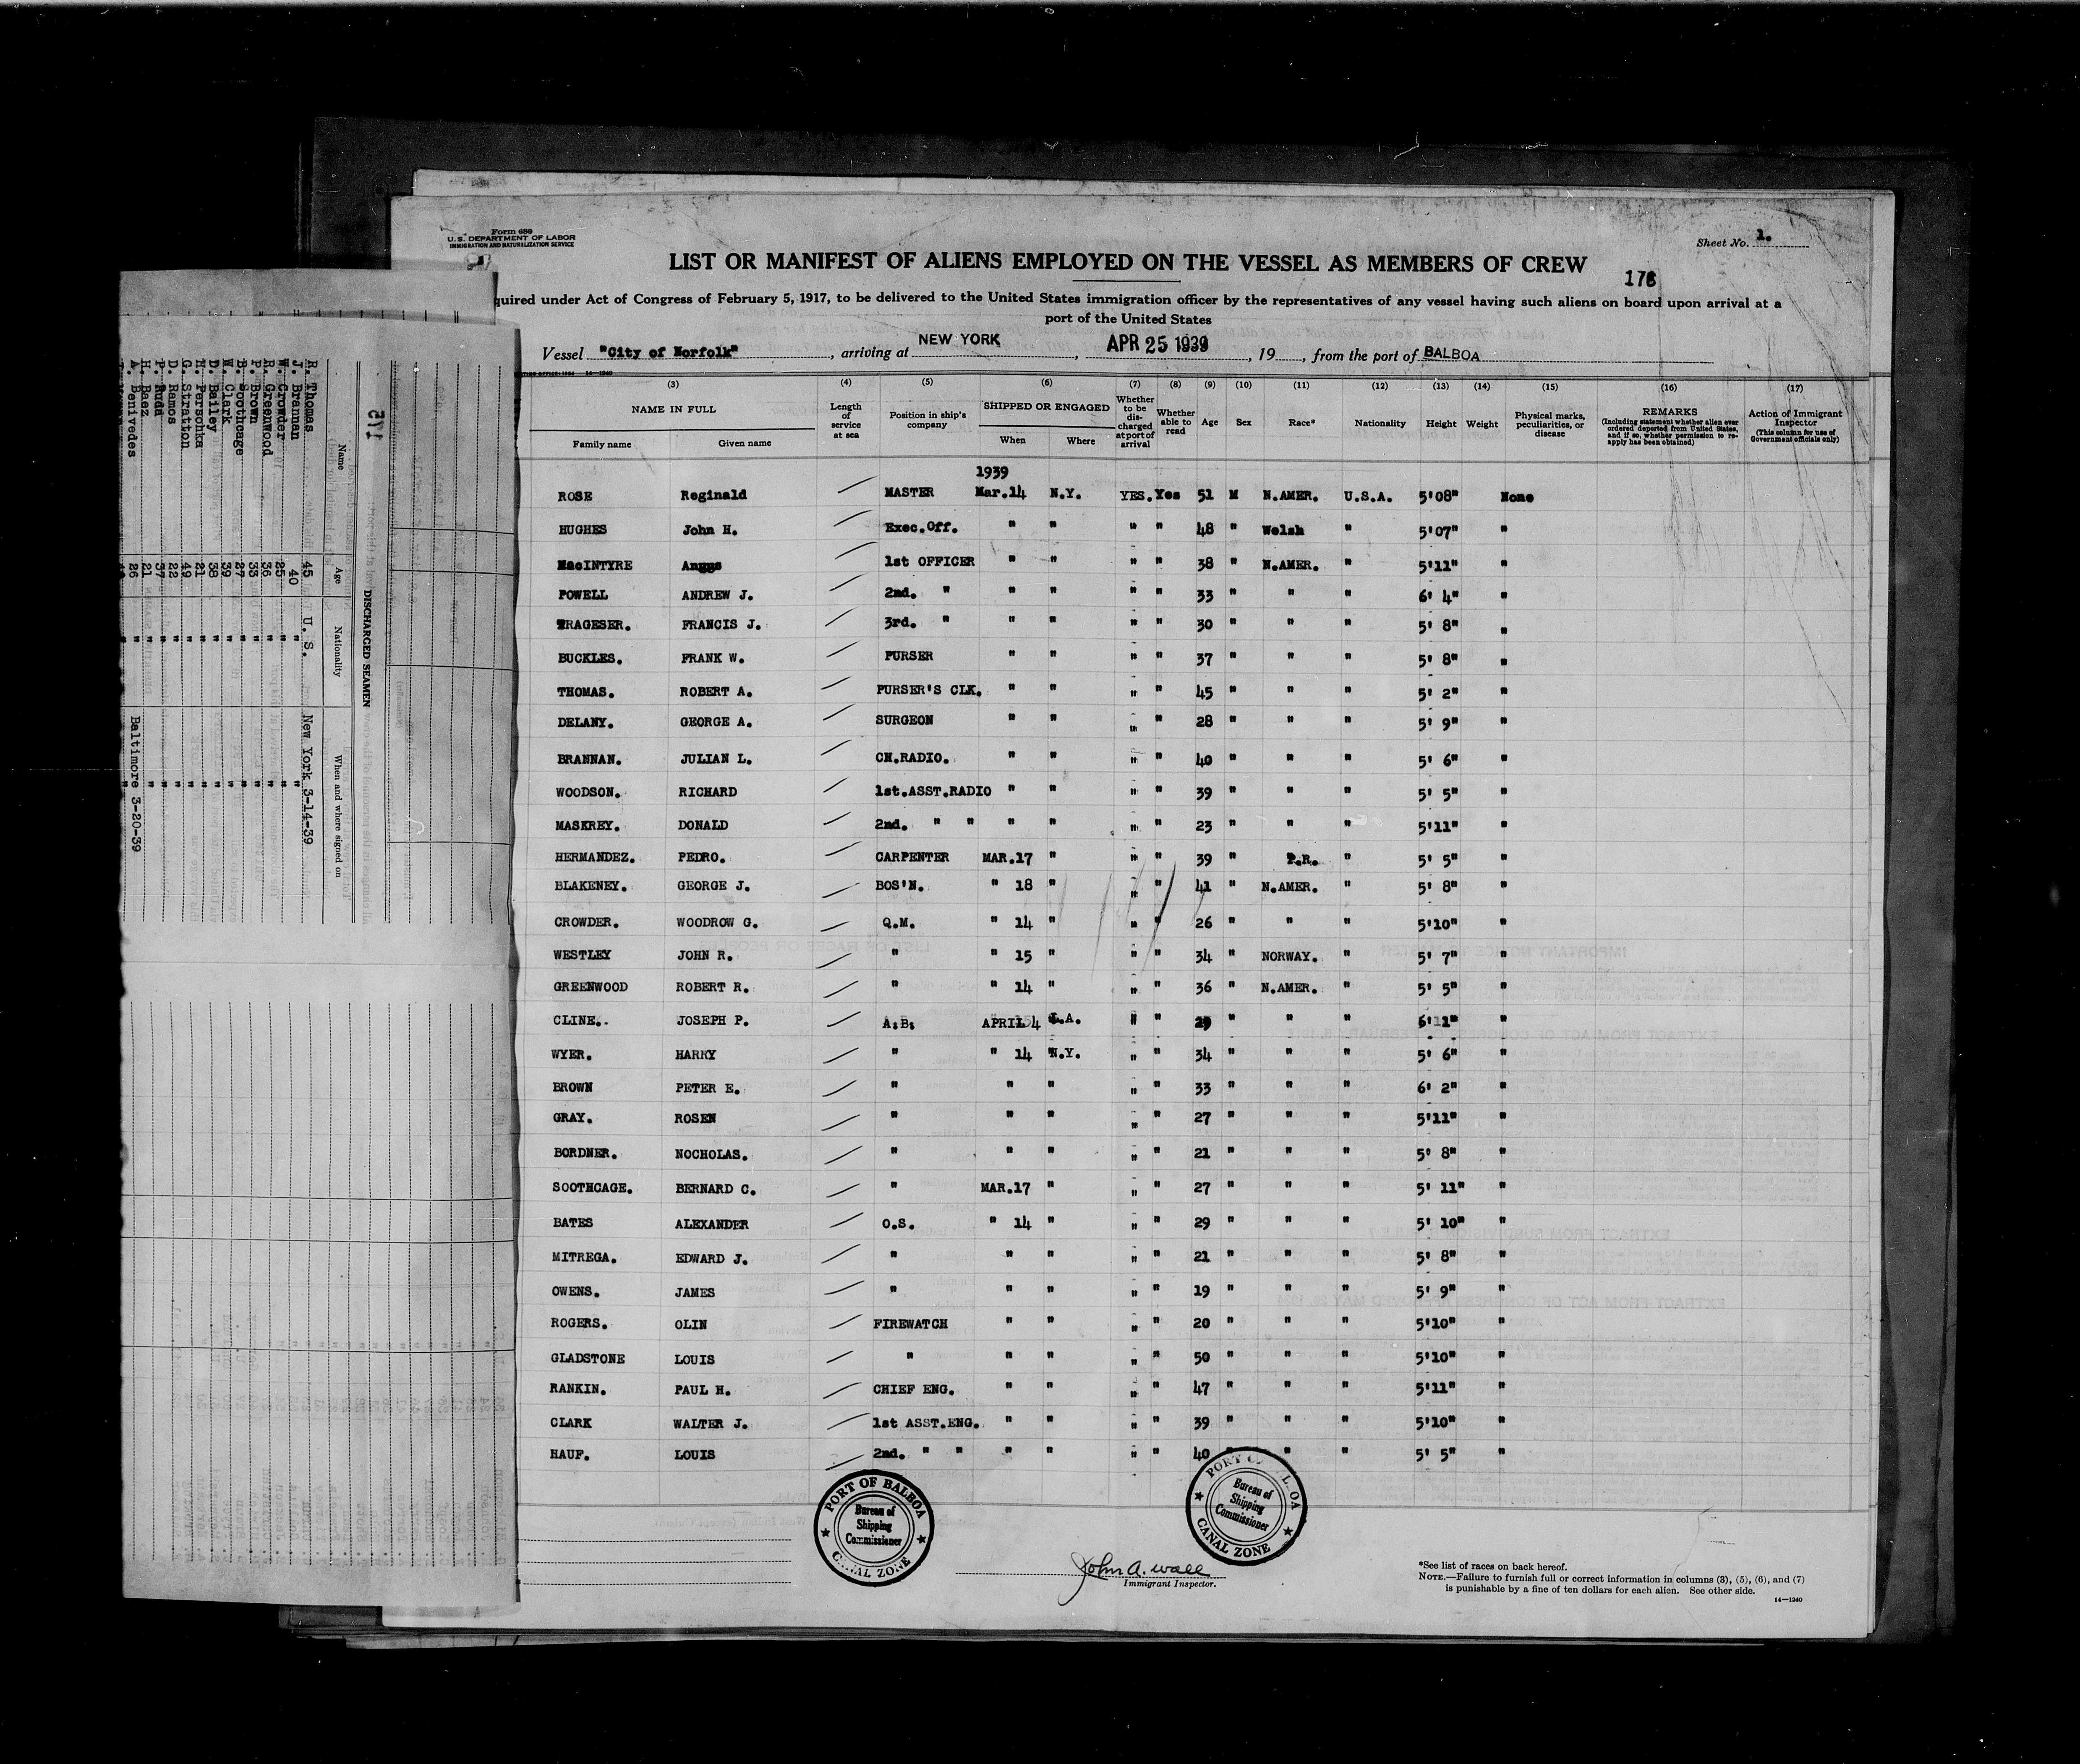 Form 680
U.S. DEPARTMENT OF LABOR
IMMIGRATION AND NATURALIZATION SERVICE
Sheet No. 1.
LIST OR MANIFEST OF ALIENS EMPLOYED ON THE VESSEL AS MEMBERS OF CREW
176
quired under Act of Congress of February 5, 1917, to be delivered to the United States immigration officer by the representatives of any vessel having such aliens on board upon arrival at a
port of the United States
Vessel "City of Norfolk", arriving at NEW YORK, APR 25 1939, 19, from the port of BALBOA
(3) (4) (5) (6) (7) (8) (9) (10) (11) (12) (13) (14) (15) (16) (17)
NAME IN FULL Family name Given name Length of service at sea Position in ship's company SHIPPED OR ENGAGED When Where Whether to be discharged at port of arrival Whether able to read Age Sex Race* Nationality Height Weight Physical marks, peculiarities, or disease REMARKS (Including statement whether alien ever ordered deported from United States, and if so, whether permission to reapply has been obtained) Action of Immigrant Inspector (This column for use of Government officials only)
1939
ROSE Reginald MASTER Mar.14 N.Y. YES. Yes 51 M N.AMER. U.S.A. 5'08" None
HUGHES John H. Exec.Off. " " " " 48 " Welsh " 5'07" "
MacINTYRE Angus 1st OFFICER " " " " 38 " N.AMER. " 5'11" "
POWELL ANDREW J. 2nd. " " " " " 33 " " " 6' 4" "
TRAGESER. FRANCIS J. 3rd. " " " " " 30 " " " 5' 8" "
BUCKLES. FRANK W. PURSER " " " " 37 " " " 5' 8" "
THOMAS. ROBERT A. PURSER'S CLK. " " " " 45 " " " 5' 2" "
DELANY. GEORGE A. SURGEON " " " " 28 " " " 5' 9" "
BRANNAN. JULIAN L. CH.RADIO. " " " " 40 " " " 5' 6" "
WOODSON. RICHARD 1st.ASST.RADIO " " " " 39 " " " 5' 5" "
MASKREY. DONALD 2nd. " " " " " " 23 " " " 5'11" "
HERMANDEZ. PEDRO. CARPENTER MAR.17 " " " 39 " P.R. " 5' 5" "
BLAKENEY. GEORGE J. BOS'N. " 18 " " " 41 " N.AMER. " 5' 8" "
CROWDER. WOODROW G. Q.M. " 14 " " " 26 " " " 5'10" "
WESTLEY JOHN R. " " 15 " " " 34 " NORWAY. " 5' 7" "
GREENWOOD ROBERT R. " " 14 " " " 36 " N.AMER. " 5' 5" "
CLINE. JOSEPH P. A.B. APRIL 4 L.A. " " 29 " " " 6'1" "
WYER. HARRY " " 14 N.Y. " " 34 " " " 5' 6" "
BROWN PETER E. " " " " " 33 " " " 6' 2" "
GRAY. ROSEN " " " " " 27 " " " 5'11" "
BORDNER. NOCHOLAS. " " " " " 21 " " " 5' 8" "
SOOTHCAGE. BERNARD C. " MAR.17 " " " 27 " " " 5' 11" "
BATES ALEXANDER O.S. " 14 " " " 29 " " " 5' 10" "
MITREGA. EDWARD J. " " " " " 21 " " " 5' 8" "
OWENS. JAMES " " " " " 19 " " " 5' 9" "
ROGERS. OLIN FIREWATCH " " " " 20 " " " 5'10" "
GLADSTONE LOUIS " " " " " 50 " " " 5'10" "
RANKIN. PAUL H. CHIEF ENG. " " " " 47 " " " 5'11" "
CLARK WALTER J. 1st ASST.ENG. " " " " 39 " " " 5'10" "
HAUF. LOUIS 2nd. " " " " " " 40 " " " 5' 5" "
PORT OF BALBOA
Bureau of
Shipping
Commissioner
CANAL ZONE
PORT OF BALBOA
Bureau of
Shipping
Commissioner
CANAL ZONE
John A. Wall
Immigrant Inspector.
*See list of races on back hereof.
NOTE.—Failure to furnish full or correct information in columns (3), (5), (6), and (7)
is punishable by a fine of ten dollars for each alien. See other side.
14—1240
175
DISCHARGED SEAMEN
Name Age Nationality When and where signed on
R. Thomas 45 U. S. New York 3-14-39
J. Brannan 40 " "
W. Crowder 25 " "
R. Greenwood 36 " "
P. Brown 33 " "
B. Soothcage 27 " "
W. Clark 39 " "
D. Bailey 38 " "
N. Persohka 21 " "
G. Stratton 49 " "
D. Ramos 22 " "
P. Ruda 37 " "
H. Baez 21 " "
A. Benivedes 26 " Baltimore 3-20-39